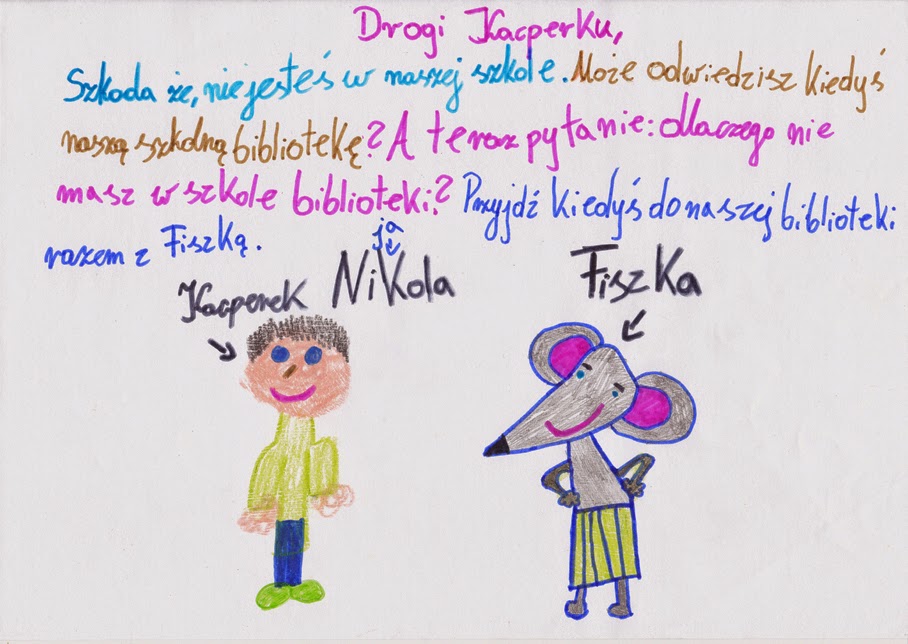 Drogi Kacperku,
Szkoda że, nie jesteś w naszej szkole. Może odwiedzisz kiedyś
naszą szkolną bibliotekę? A teraz pytanie: dlaczego nie
masz w szkole biblioteki? Przyjdź kiedyś do naszej biblioteki
razem z Fiszką.
ja
Kacperek Nikola Fiszka